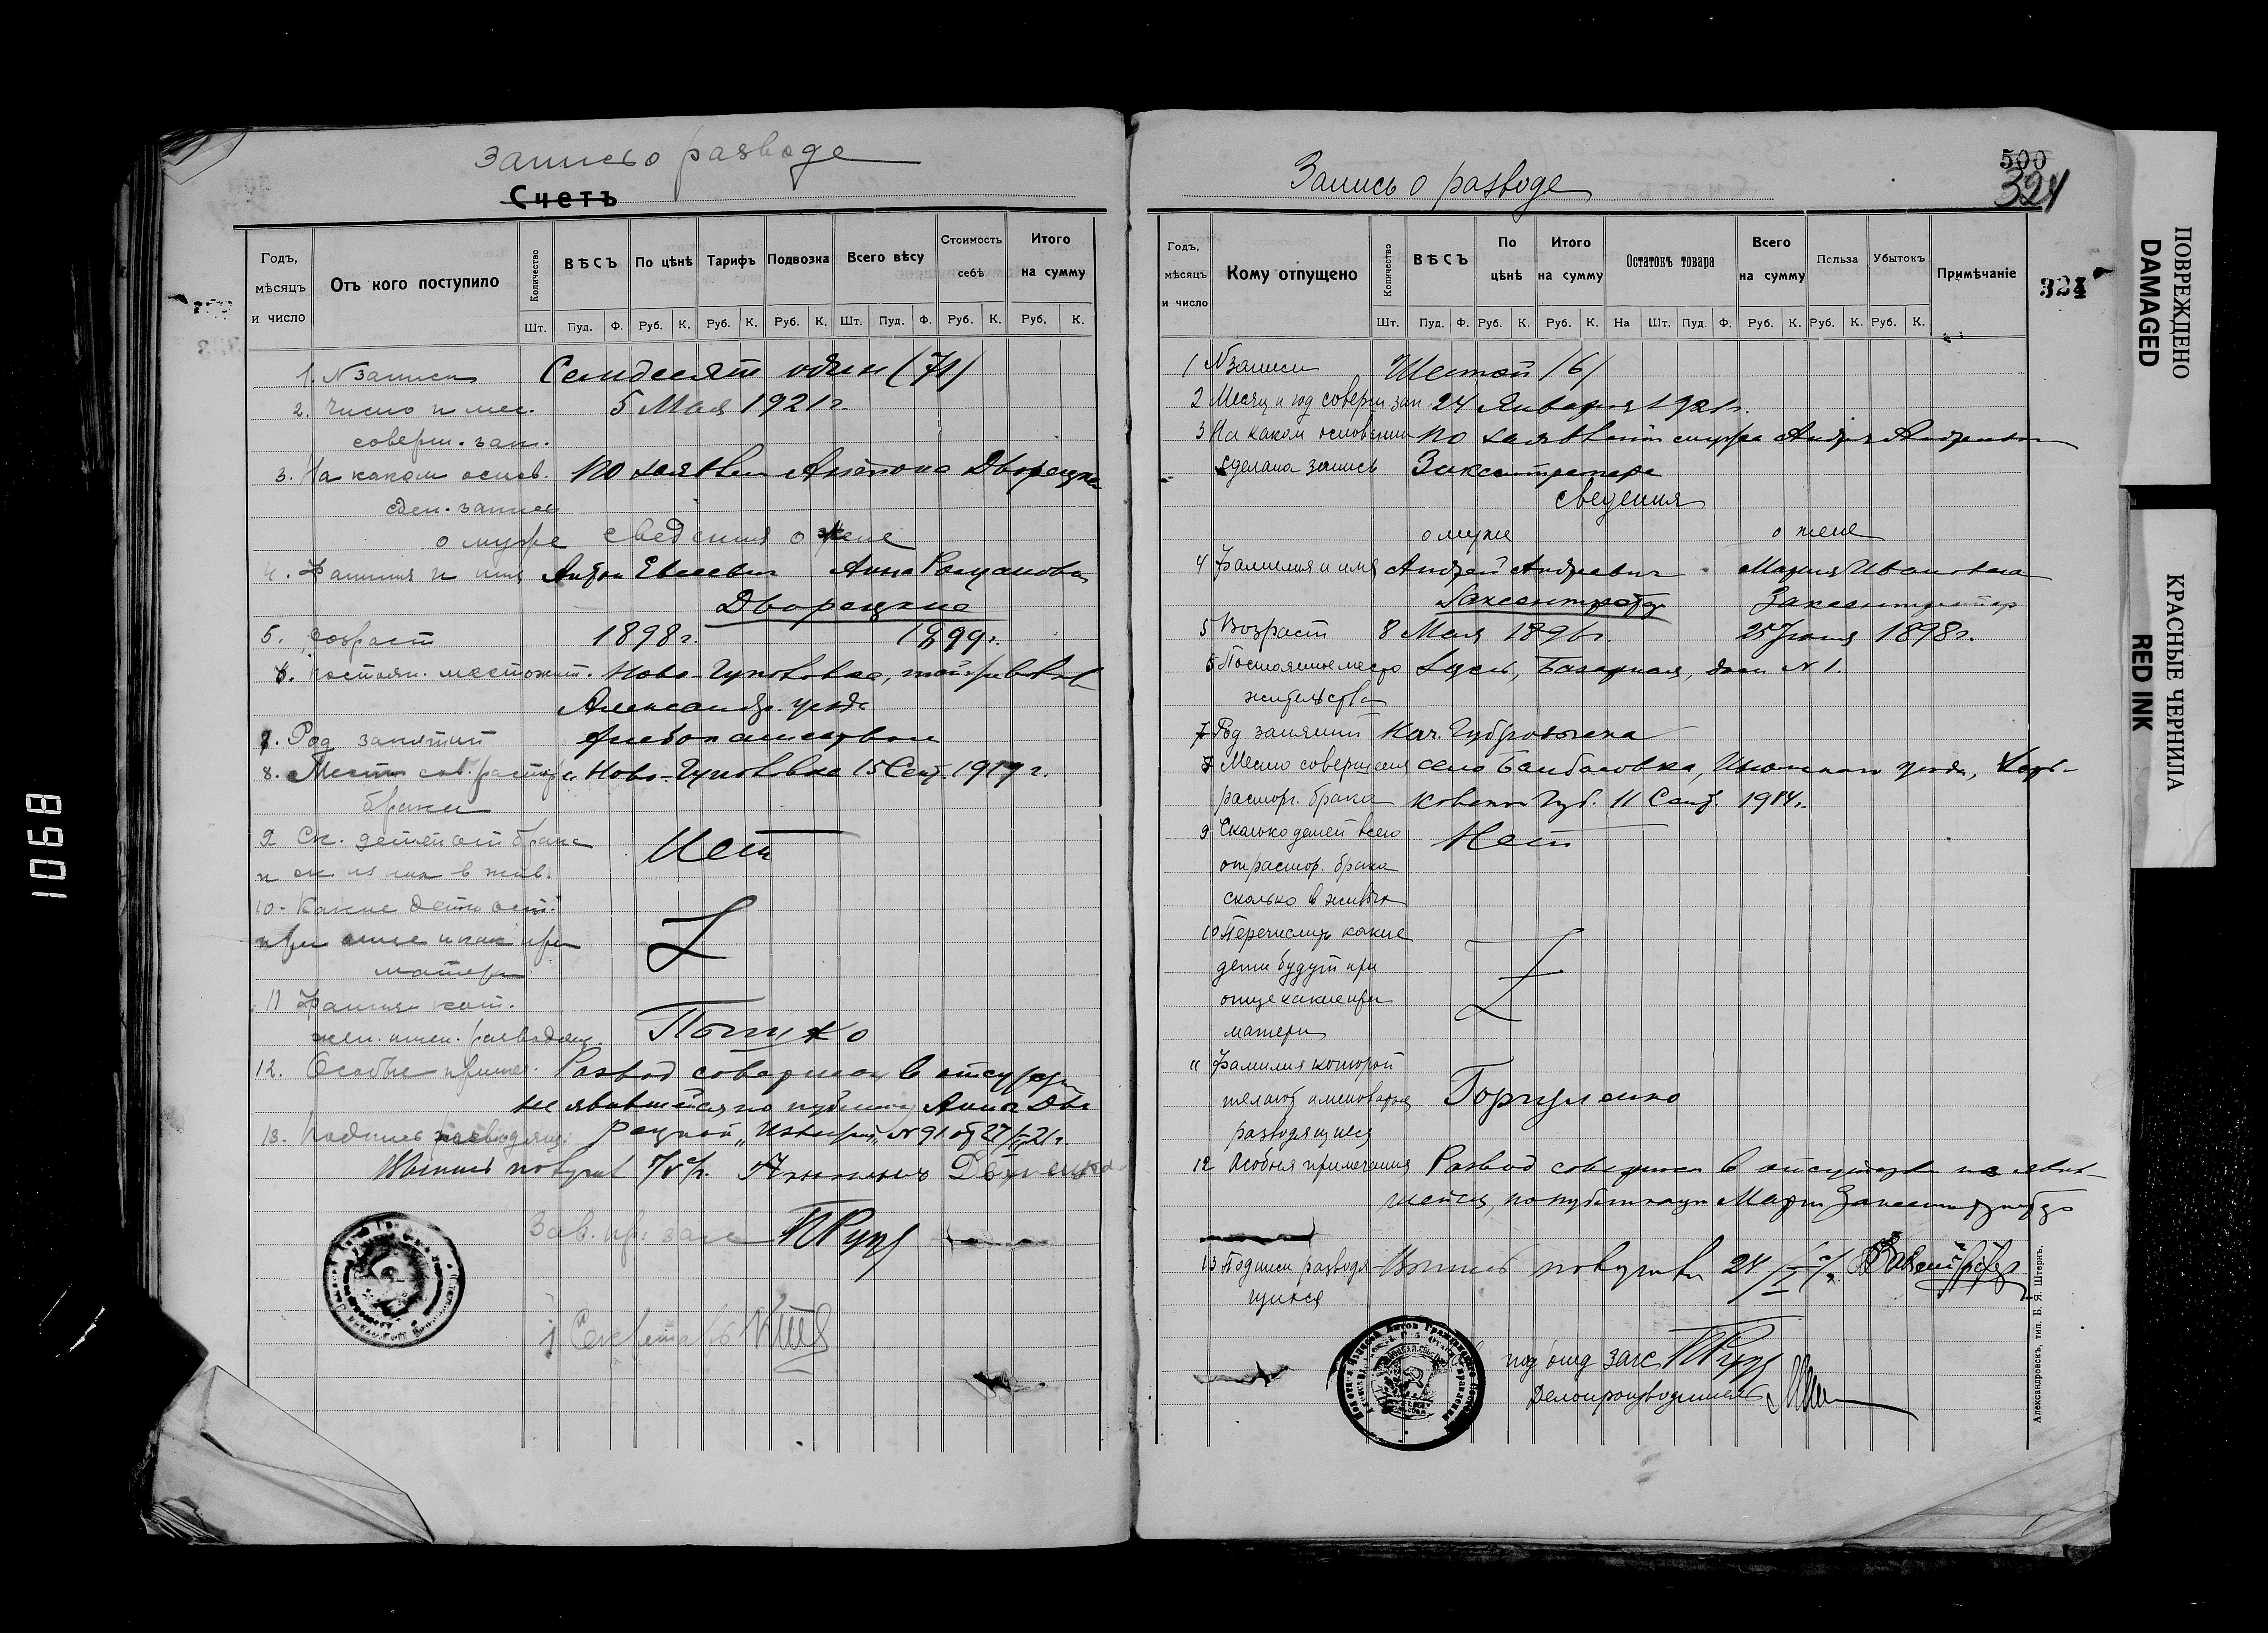 Запись о разводе
Счетъ
Годъ, мѣсяцъ и число
Отъ кого поступило
Количество
ВѢСЪ
По цѣнѣ
Тарифъ
Подвозка
Всего вѣсу
Стоимость себѣ
Итого на сумму
Шт. Пуд. Ф. Руб. К. Руб. К. Руб. К. Шт. Пуд. Ф. Руб. К. Руб. К.
1. N записи Семдесят один (71)
2. Число и мес. 5 Мая 1921 г.
соверш. зап.
3. На каком основ. по заявлен Антона Дворецка
сдел. запись
о муже сведения о жене
4. Фамилия и имя Антон Евсеевич Анна Романовна
Дворецкие
5. Возраст 1898 г. 1899 г.
6. Постоян. местожит. Ново-Гуповка,
Александр. уезда
7. Род занятий хлебопашество
8. Место сов. расторг. Ново-Гуповка 15 Сент. 1919 г.
брака
9 Ск. детей от брака Нет
и ск. из них в жив.
10. Какие дети ост. Z
при отце и как при
матери
11 Фамил. кот.
жел. имен. разводящ.
12. Особые примеч. Развод совершен в отсутств
не явившейся по публикац Анны Дво
13. Подпись разводящ. рецкой "Известий" N 91 от 27/IV 21 г.
Выпись получил
Зав. п/о загс
Секретарь
1068
Запись о разводе
500
324
324
Годъ, мѣсяцъ и число
Кому отпущено
Количество
ВѢСЪ
По цѣнѣ
Итого на сумму
Остатокъ товара
Всего на сумму
Польза
Убытокъ
Примѣчаніе
Шт. Пуд. Ф. Руб. К. Руб. К. На Шт. Пуд. Ф. Руб. К. Руб. К. Руб. К.
1 N записи Шестой /6/
2 Месяц и год соверш. зап. 24 Января 1921 г.
3 На каком основании по заявлению Андрея Андреевич
сделана запись
сведения
о муже о жене
4 Фамилия и имя Андрей Андреевич Мария Ивановна
5 Возраст 8 Мая 1896 г. 25 Июня 1898 г.
6 Постоянное место Базарная, дом N 1.
жительства
7 Род занятий Нач.
8 Место совершения село Барбасовка, Изюмского уезда, Харь-
расторг. брака ковской Губ. 11 Сент. 1914 г.
9 Сколько детей всего Нет
от расторг. брака
сколько в живых
10 Перечислить какие Z
дети будут при
отце какие при
матери
11 Фамилия которой
желают именоваться Горпуленко
разводящиеся
12 Особыя примечания Развод совершен в отсутствии не явив
шейся, по публикации Марии
13 Подписи разводя- Выпись получил 24/I
щихся
под'отд загс
Делопроизводитель
Александровскъ, тип. Б. Я. Штернъ.
ПОВРЕЖДЕНО
DAMAGED
КРАСНЫЕ ЧЕРНИЛА
RED INK